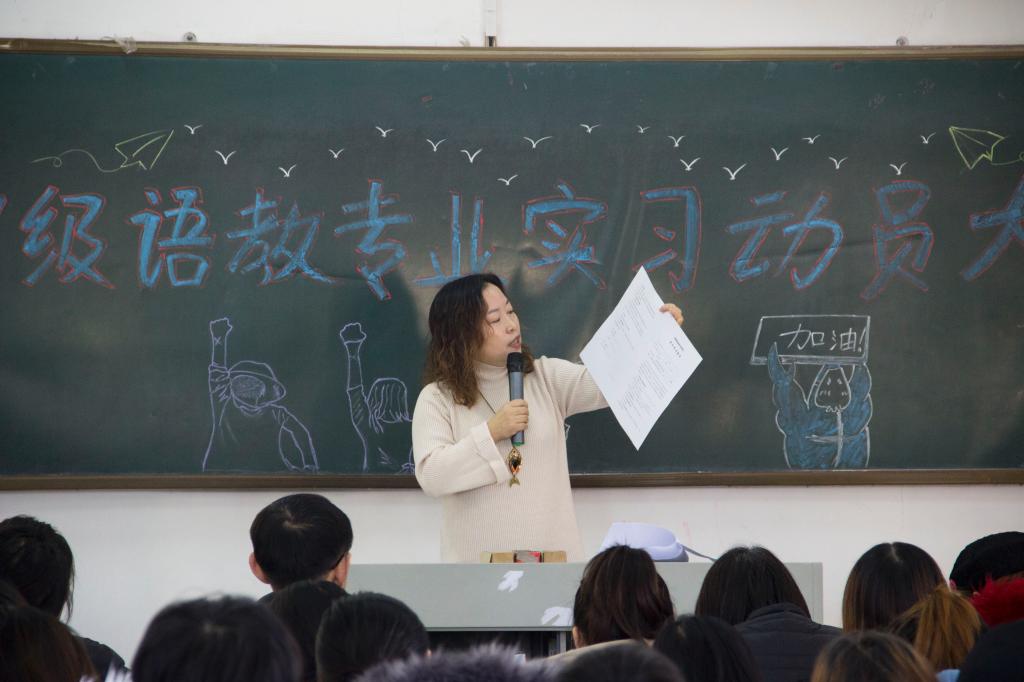 级语教专业实习动员大
加油!